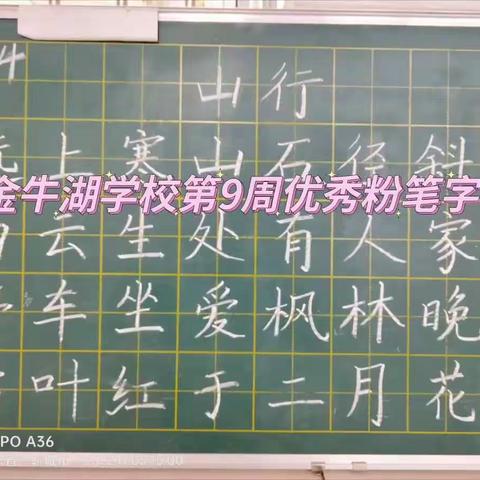 山行
上寒山石径斜
金牛湖学校第9周优秀粉笔字
云生处有人家
车坐爱枫林晚
叶红于二月花
PO A36